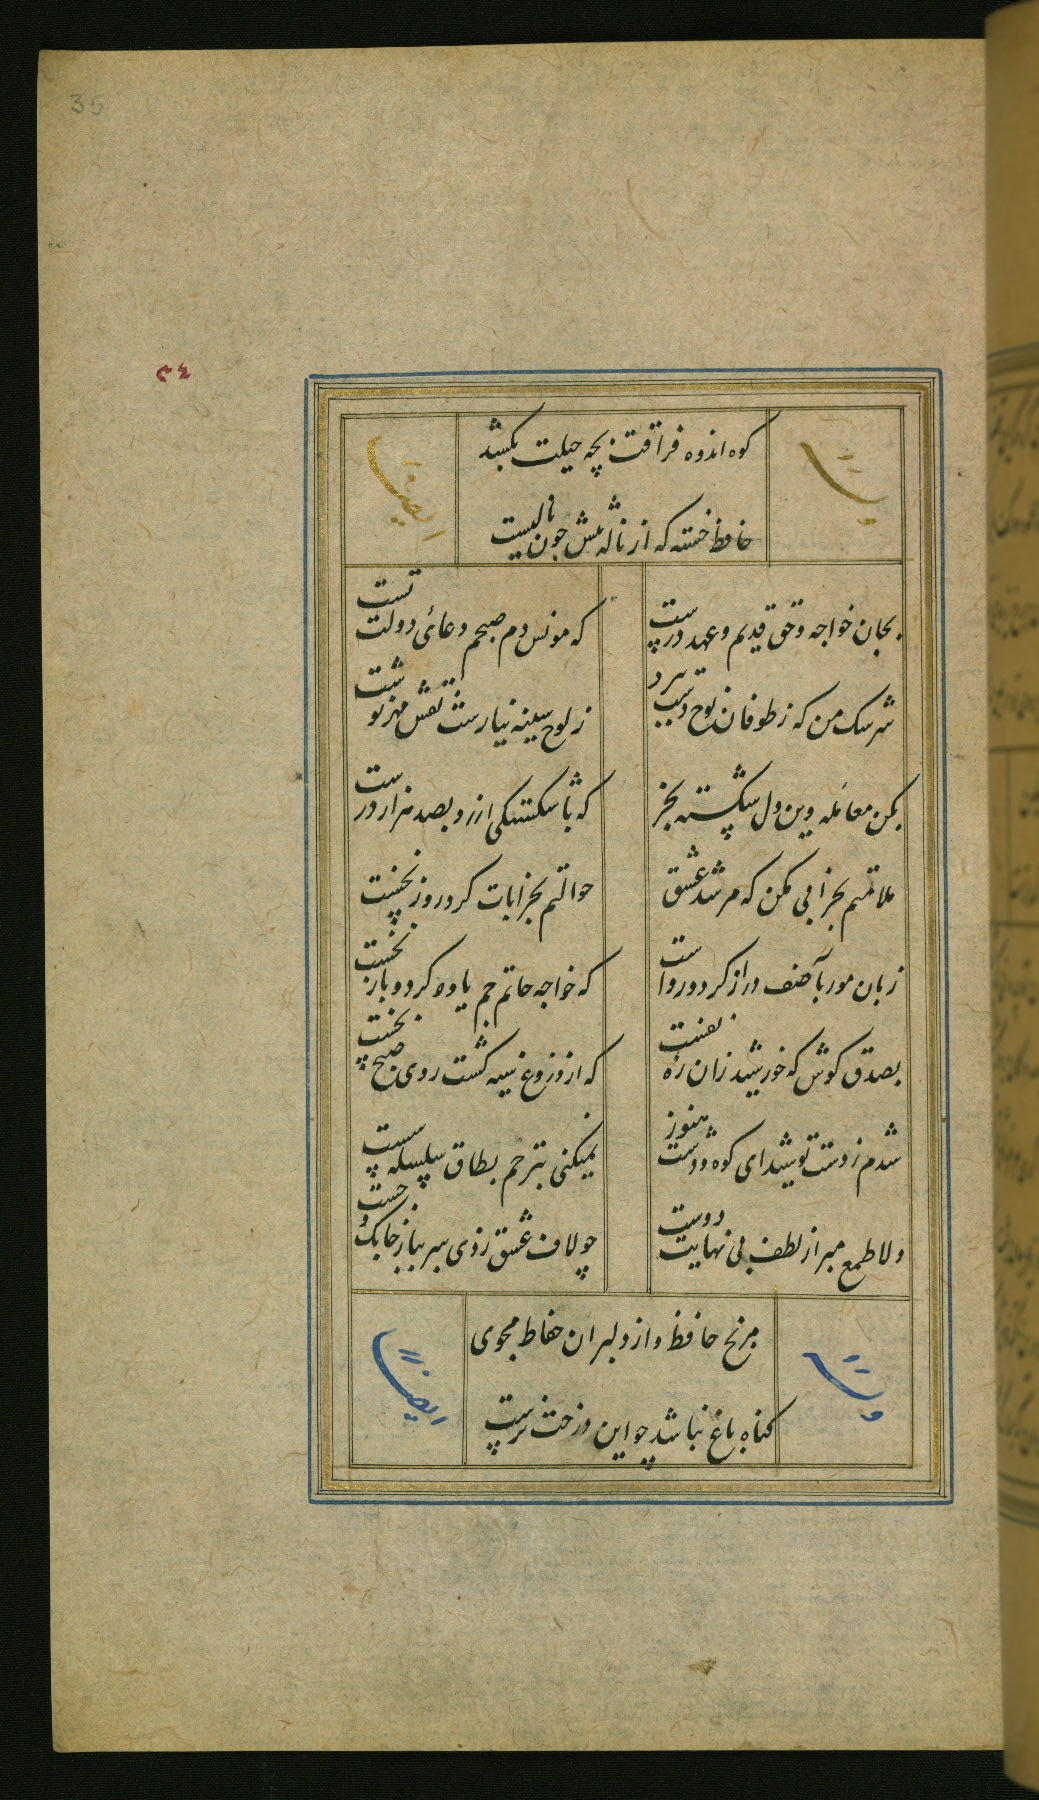 35
٣٤
کوه اندوه فراقت بچه حیلت بکشد
حافظ خسته که از ناله تنش چون نالیست
وله
ایضا
بجان خواجه وحق قدیم وعهد درست
که مونس دم صبحم دعائی دولت تست
سرشک من که زطوفان نوح دست ببرد
زلوح سینه نیارست نقش مهر تو شست
بکن معامله وین دل شکسته بخر
که با شکستگی ارزد بصد هزار درست
ملامتم بخرابی مکن که مرشد عشق
حوالتم بخرابات کرد روز نخست
زبان مور بآصف دراز کرد ورواست
که خواجه خاتم جم یاوه کرد وباز نجست
بصدق کوش که خورشید زاید از نفست
که از دروغ سیه کشت روی صبح نخست
شدم زدست تو شیدای کوه ودشت هنوز
نمیکنی بترحم نطاق سلسله سست
دلا طمع مبر از لطف بی نهایت دوست
چو لاف عشق زدی سر بباز چابک و چست
مرنج حافظ واز دلبران حفاظ مجوی
کناه باغ نباشد چو این درخت نرست
وله
ایضا